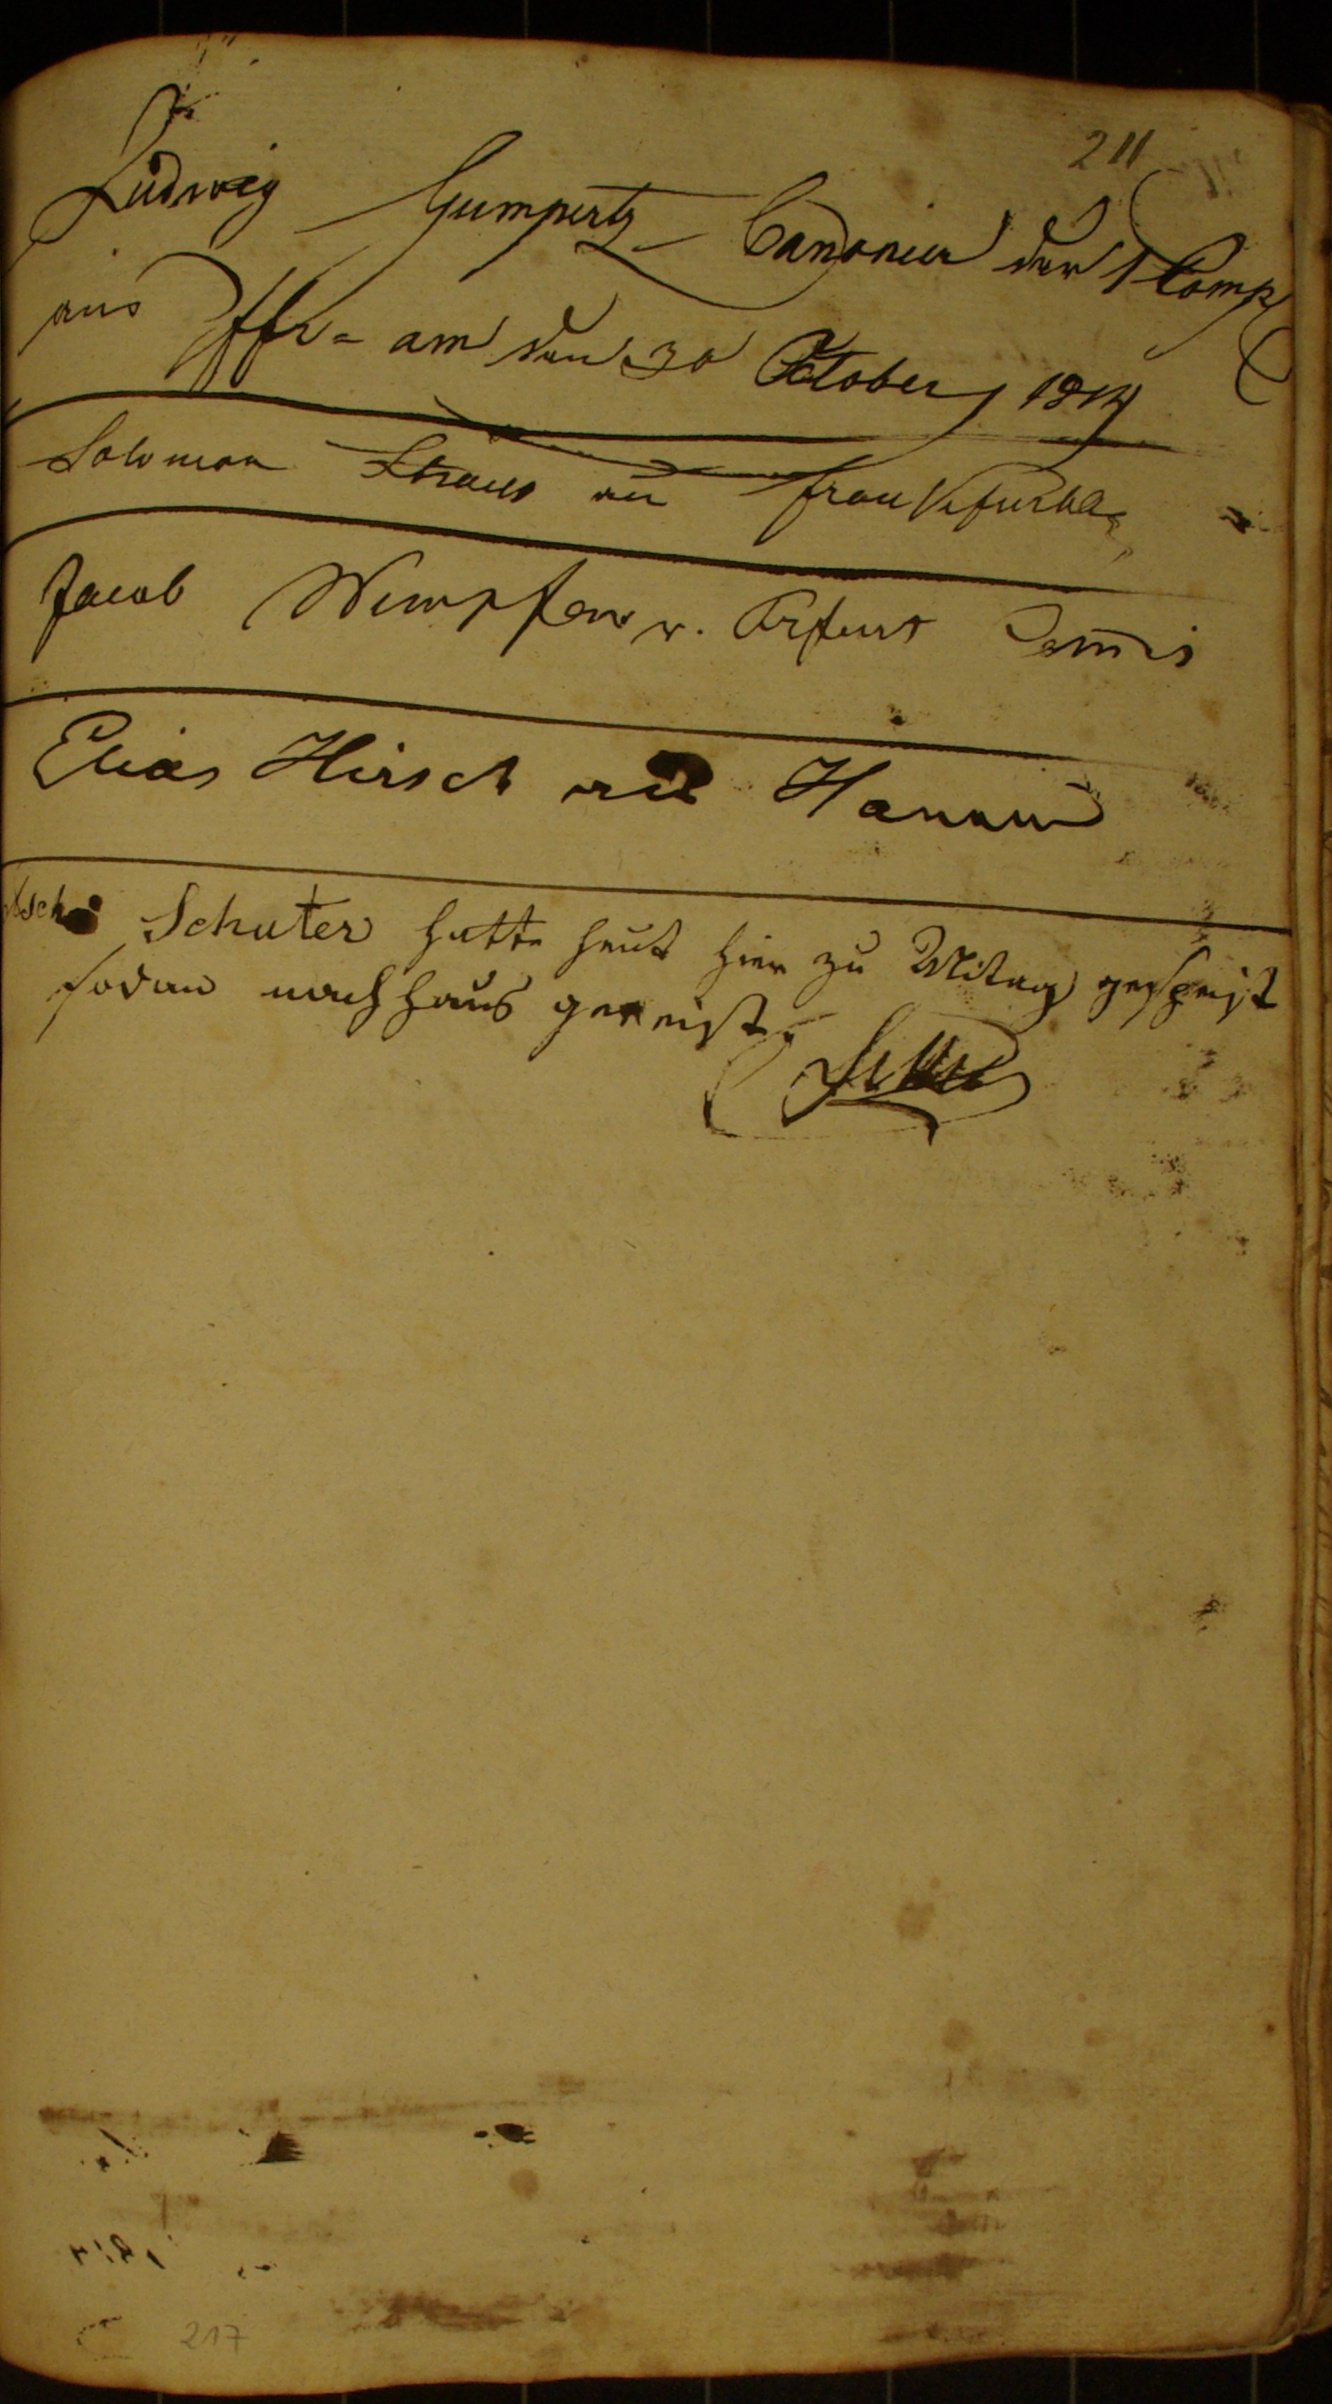 211
Ludwig Gumpertz Canonier der 1 Comp
aus Fft- am den 30 October 1814
Solomon Straus au Frankfurth
Jacob Wimpfen v. Erfurt
Elias Hirsch aus Hanau
Schuster hatte heut hier zu Mitag gespeist
sodan nach haus gereist.
217